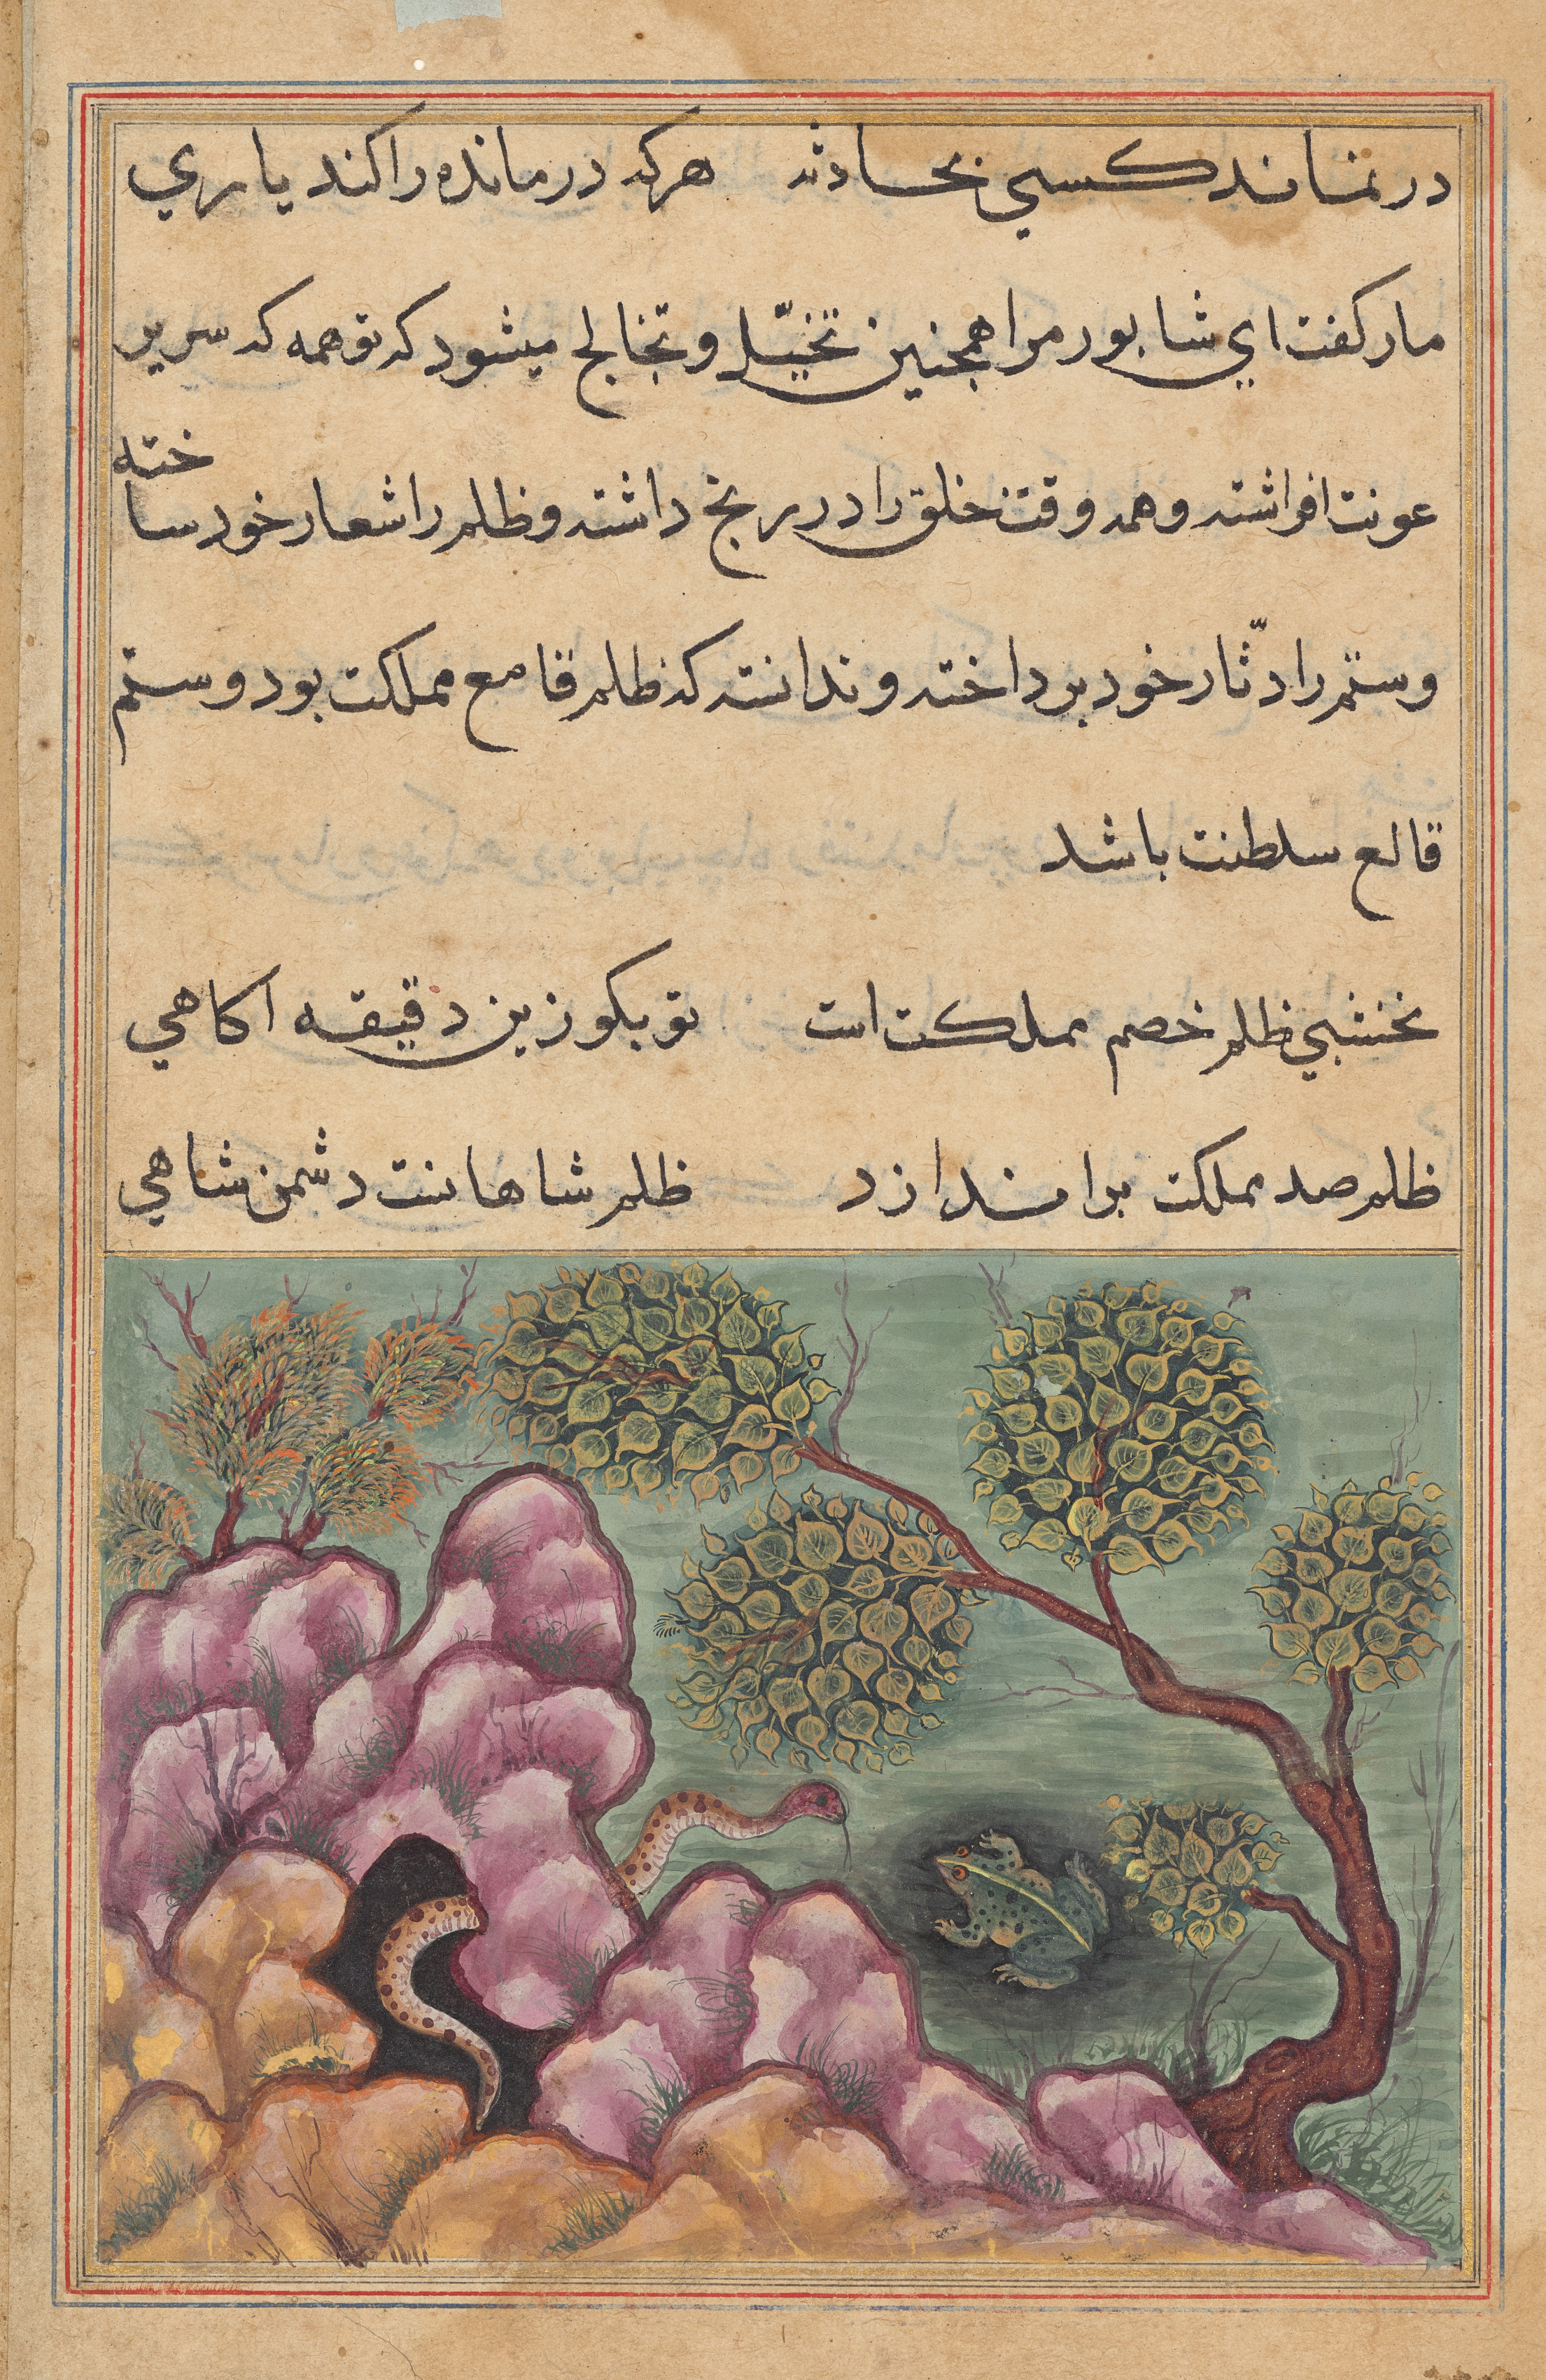 در نماند کسی بحادثه هرکه درمانده را کند یاری
مار کفت ای شابور مرا همچنین تخیّل و تخالج میشود که تو همه که سریر
عونت افراشته و همه وقت خلق را در رنج داشته و ظلم را شعار خود ساخته
و ستم را دثّار خود برداخته و ندانسته که ظلم قامع مملکت بود و ستم
قالع سلطنت باشد
نخشبی ظلم خصم مملکت است تو بکو زین دقیقه آکاهی
ظلم صد مملکت براندازد ظلم شاهانست دشمن شاهی